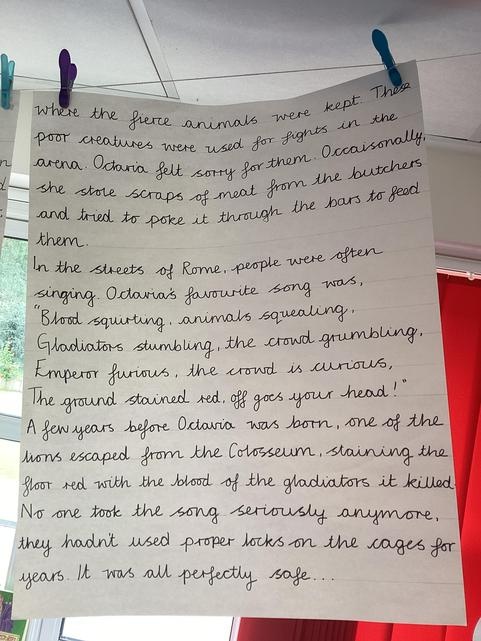 where the fierce animals were kept. These
poor creatures were used for fights in the
arena. Octavia felt sorry for them. Occaisonally,
she stole scraps of meat from the butchers
and tried to poke it through the bars to feed
them.
In the streets of Rome, people were often
singing. Octavia's favourite song was,
"Blood squirting, animals squealing,
Gladiators stumbling, the crowd grumbling,
Emperor furious, the crowd is curious,
The ground stained red, off goes your head!"
A few years before Octavia was born, one of the
lions escaped from the Colosseum, staining the
floor red with the blood of the gladiators it killed.
No one took the song seriously anymore,
they hadn't used proper locks on the cages for
years. It was all perfectly safe...